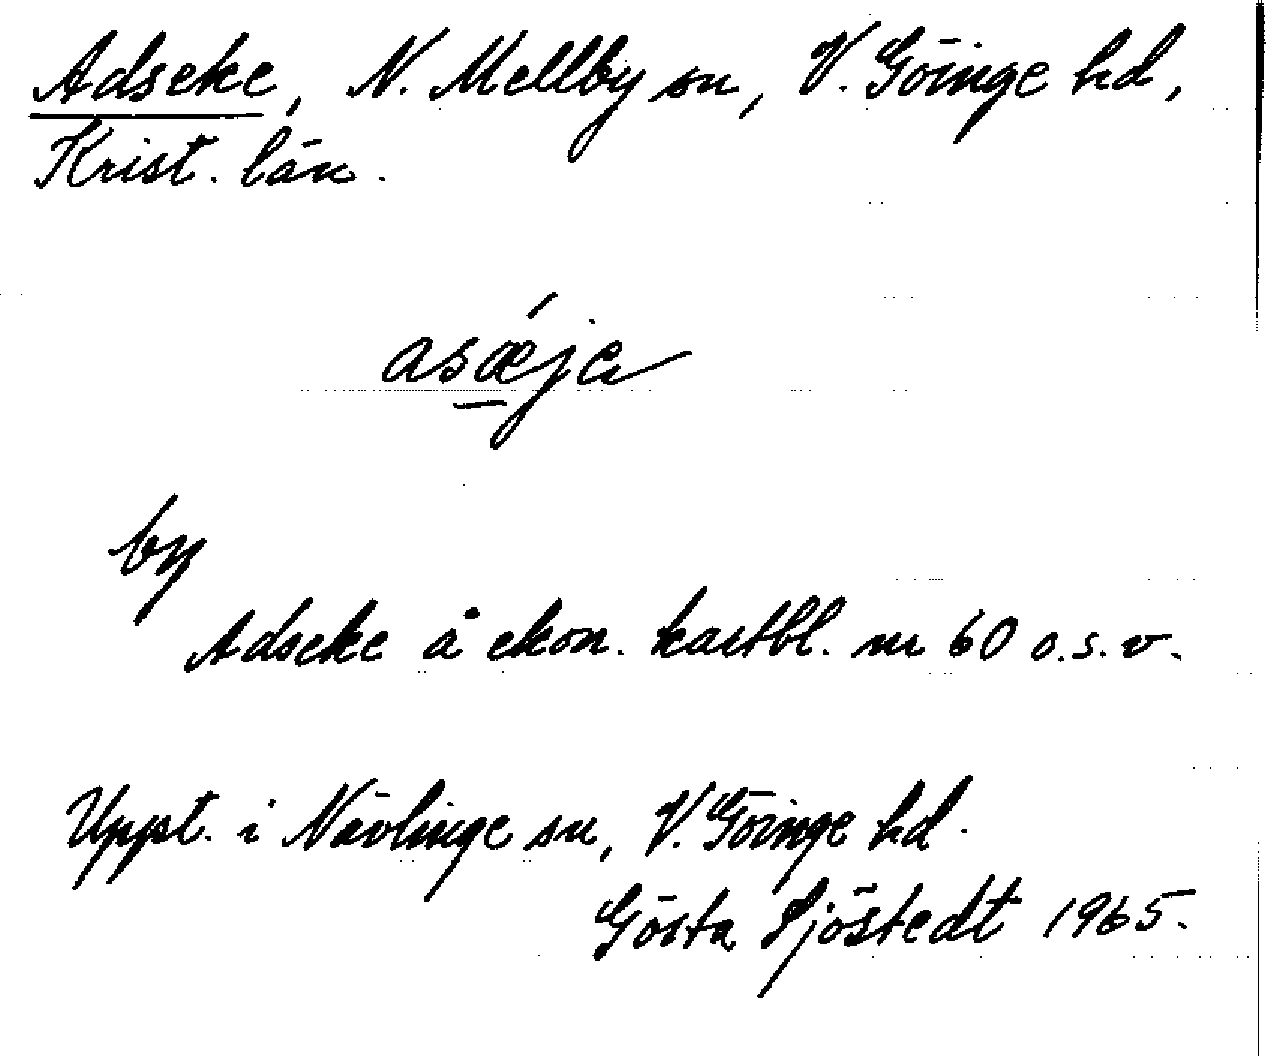 Adseke, N. Mellby sn, V. Göinge hd,
Krist. län.
asǽja
by
Adseke å ekon. kartbl. nr 60 o.s.v.
Uppt. i Nävlinge sn, V. Göinge hd.
Gösta Sjöstedt 1965.